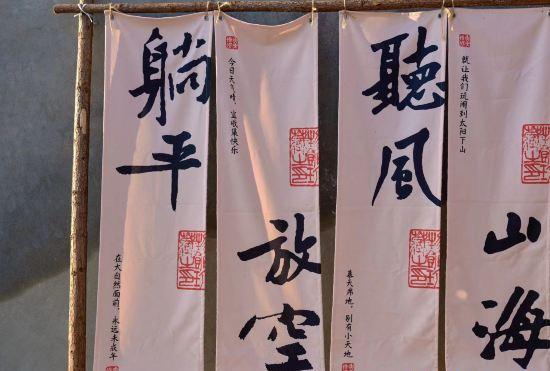 躺平
在大自然面前，永远未成年
今日天气晴，宜收集快乐
放空
聽風
幕天席地，别有小天地
就让我们闹到太阳下山
山海